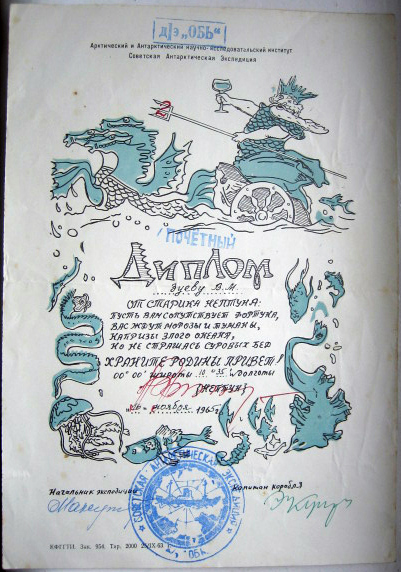 д/э „ОБЬ"
Арктический и Антарктический научно-исследовательский институт
Советская Антарктическая Экспедиция
2
ПОЧЁТНЫЙ
ДИПЛОМ
Зуеву В.М.
ОТ СТАРИКА НЕПТУНА:
ПУСТЬ ВАМ СОПУТСТВУЕТ ФОРТУНА,
ВАС ЖДУТ МОРОЗЫ И ТУМАНЫ,
КАПРИЗЫ ЗЛОГО ОКЕАНА,
НО НЕ СТРАШАСЬ СУРОВЫХ БЕД
ХРАНИТЕ РОДИНЫ ПРИВЕТ!
00° 00' широты 10° 35' долготы
(НЕПТУН)
ноября 1965 г.
Начальник экспедиции
Капитан корабля
СОВЕТСКАЯ АНТАРКТИЧЕСКАЯ ЭКСПЕДИЦИЯ
ОБЬ
Зак. 954. Тир. 2000